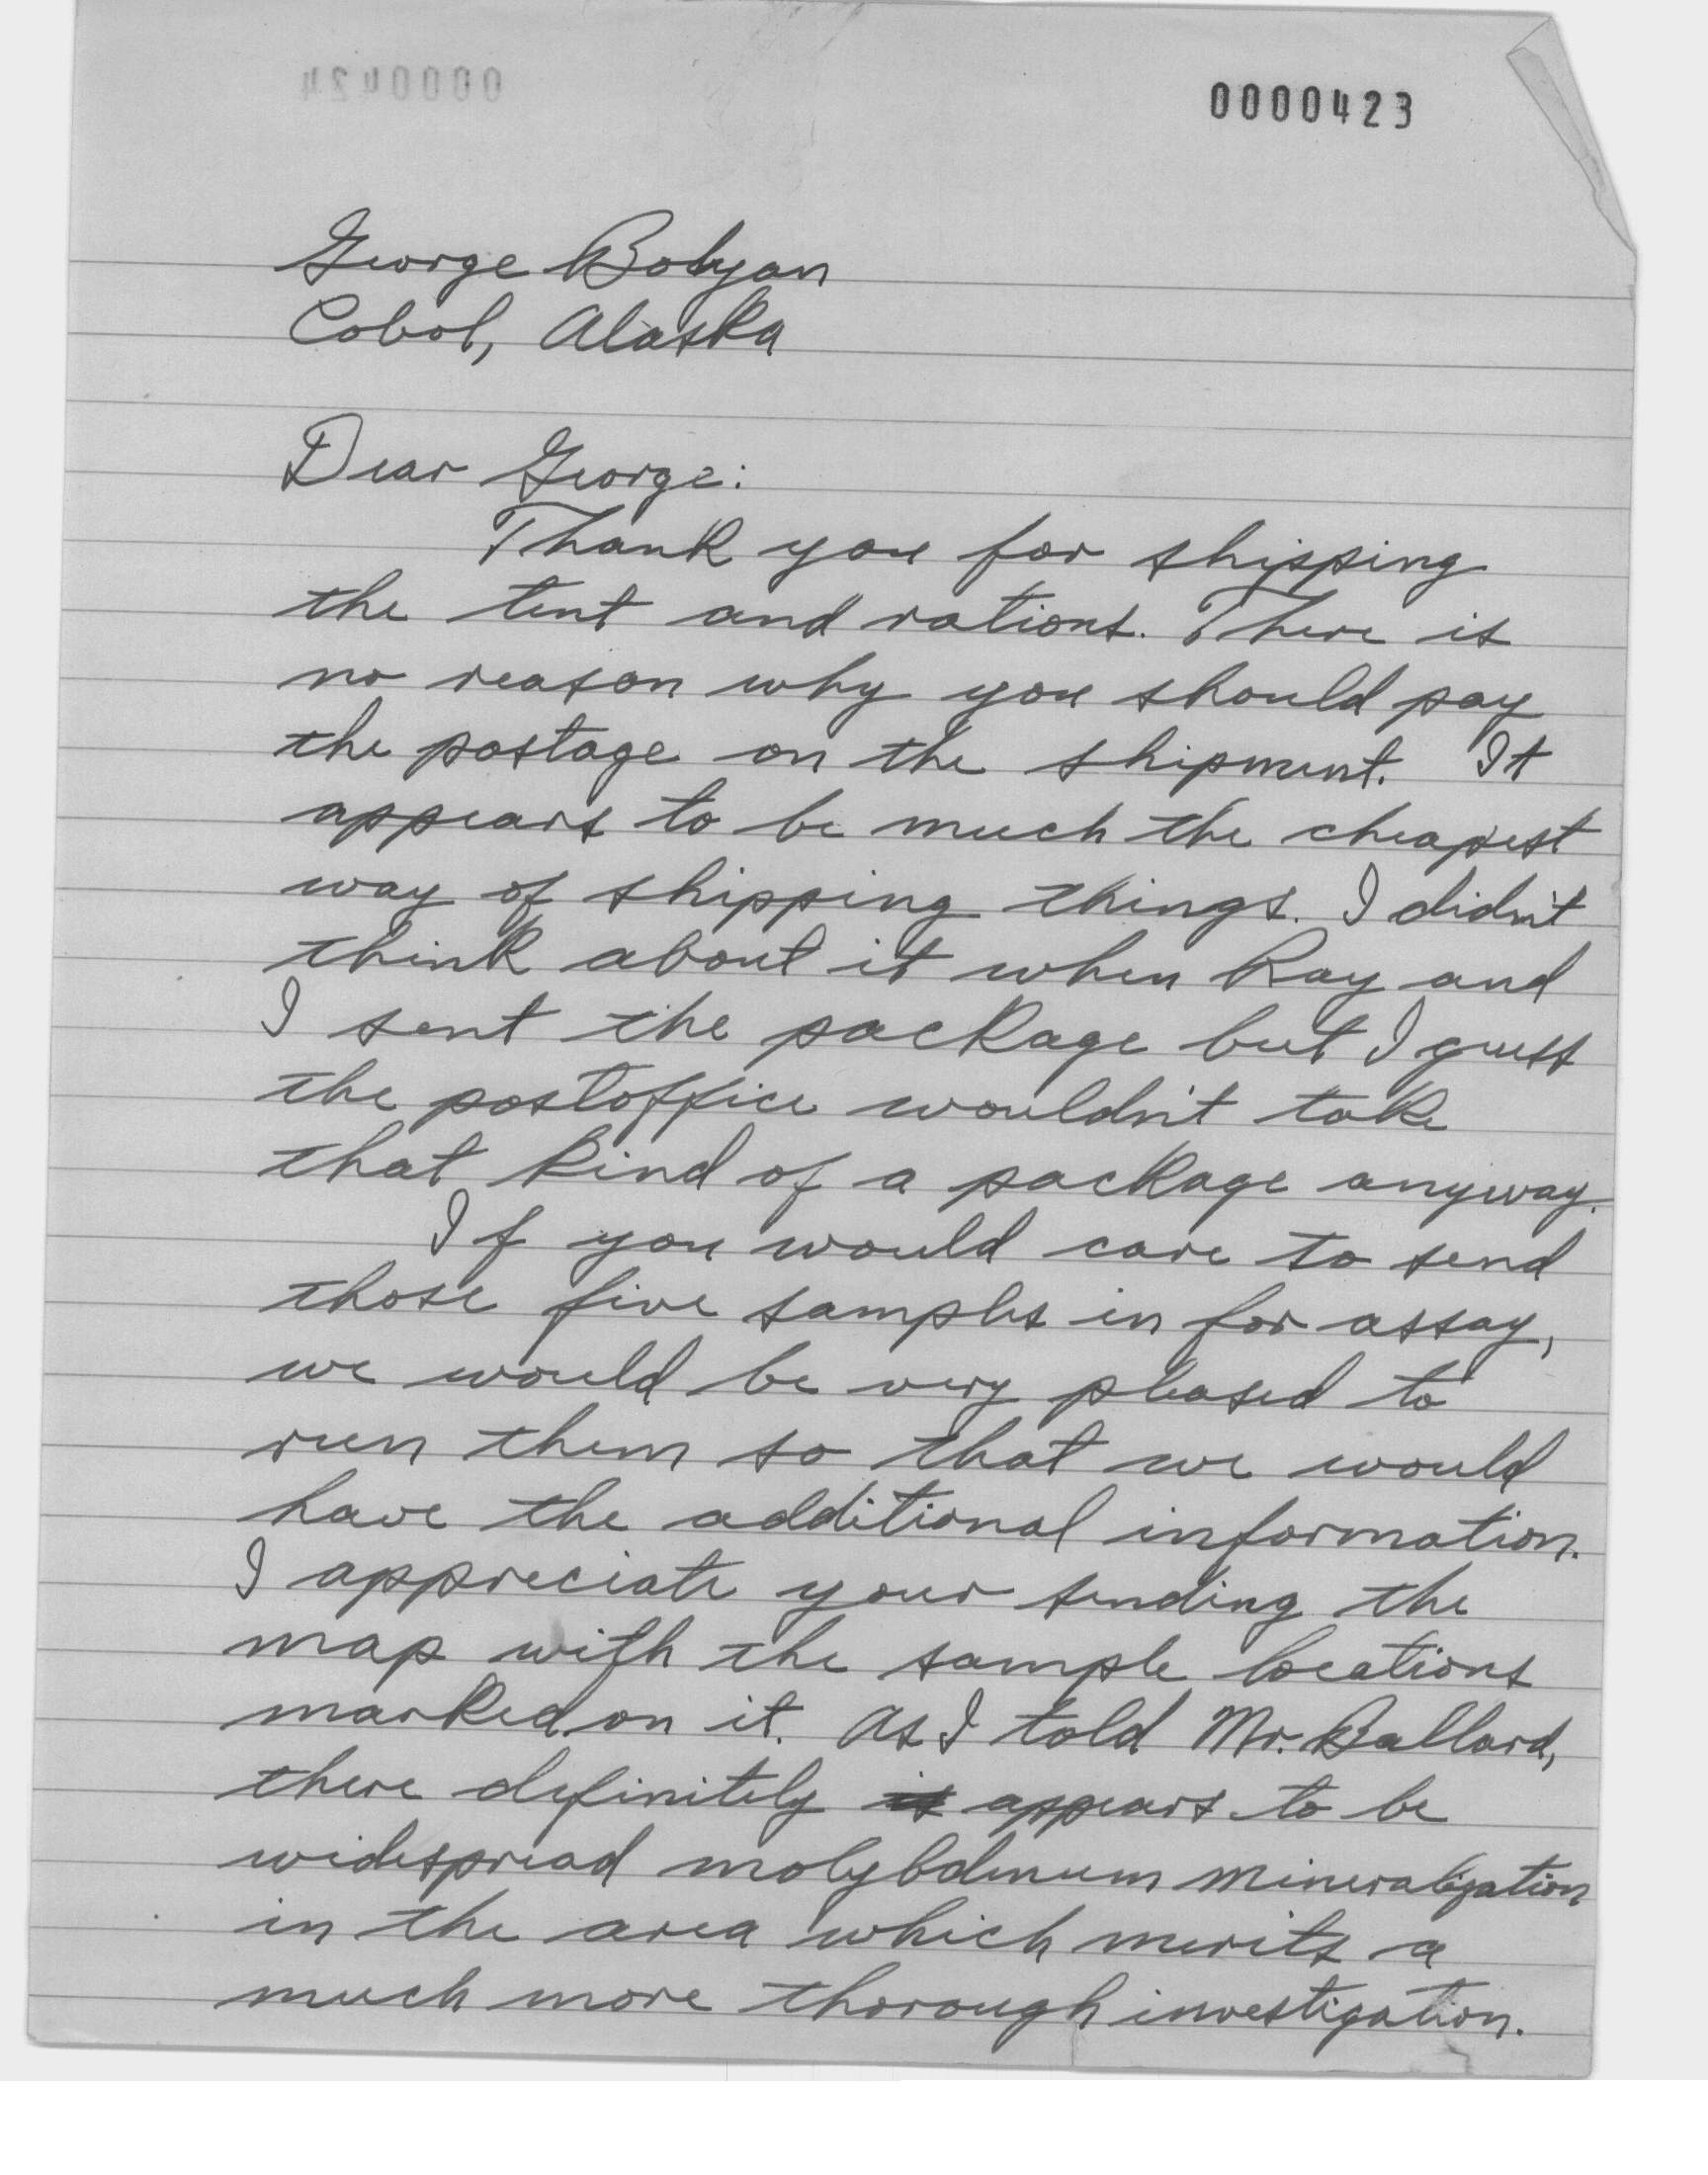 0000424
0000423
George Bobyan
Cobol, Alaska
Dear George:
Thank you for shipping
the tent and rations. There is
no reason why you should pay
the postage on the shipment. It
appears to be much the cheapest
way of shipping things. I didn't
think about it when Ray and
I sent the package but I guess
the postoffice wouldn't take
that kind of a package anyway.
If you would care to send
those five samples in for assay,
we would be very pleased to
run them so that we would
have the additional information.
I appreciate your sending the
map with the sample locations
marked on it. As I told Mr. Ballard,
there definitely is appears to be
widespread molybdenum mineralization
in the area which merits a
much more thorough investigation.